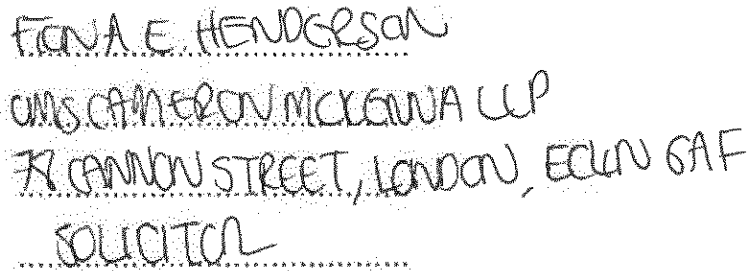 FIONA E. HENDERSON
CMS CAMERON MCKENNA LLP
78 CANNON STREET, LONDON, EC4N 6AF
SOLICITOR